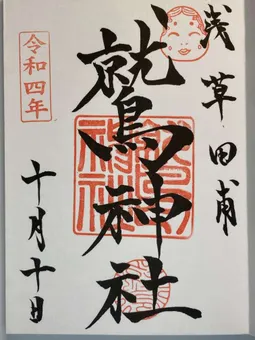 浅草田甫
鷲神社
令和四年
十月十日